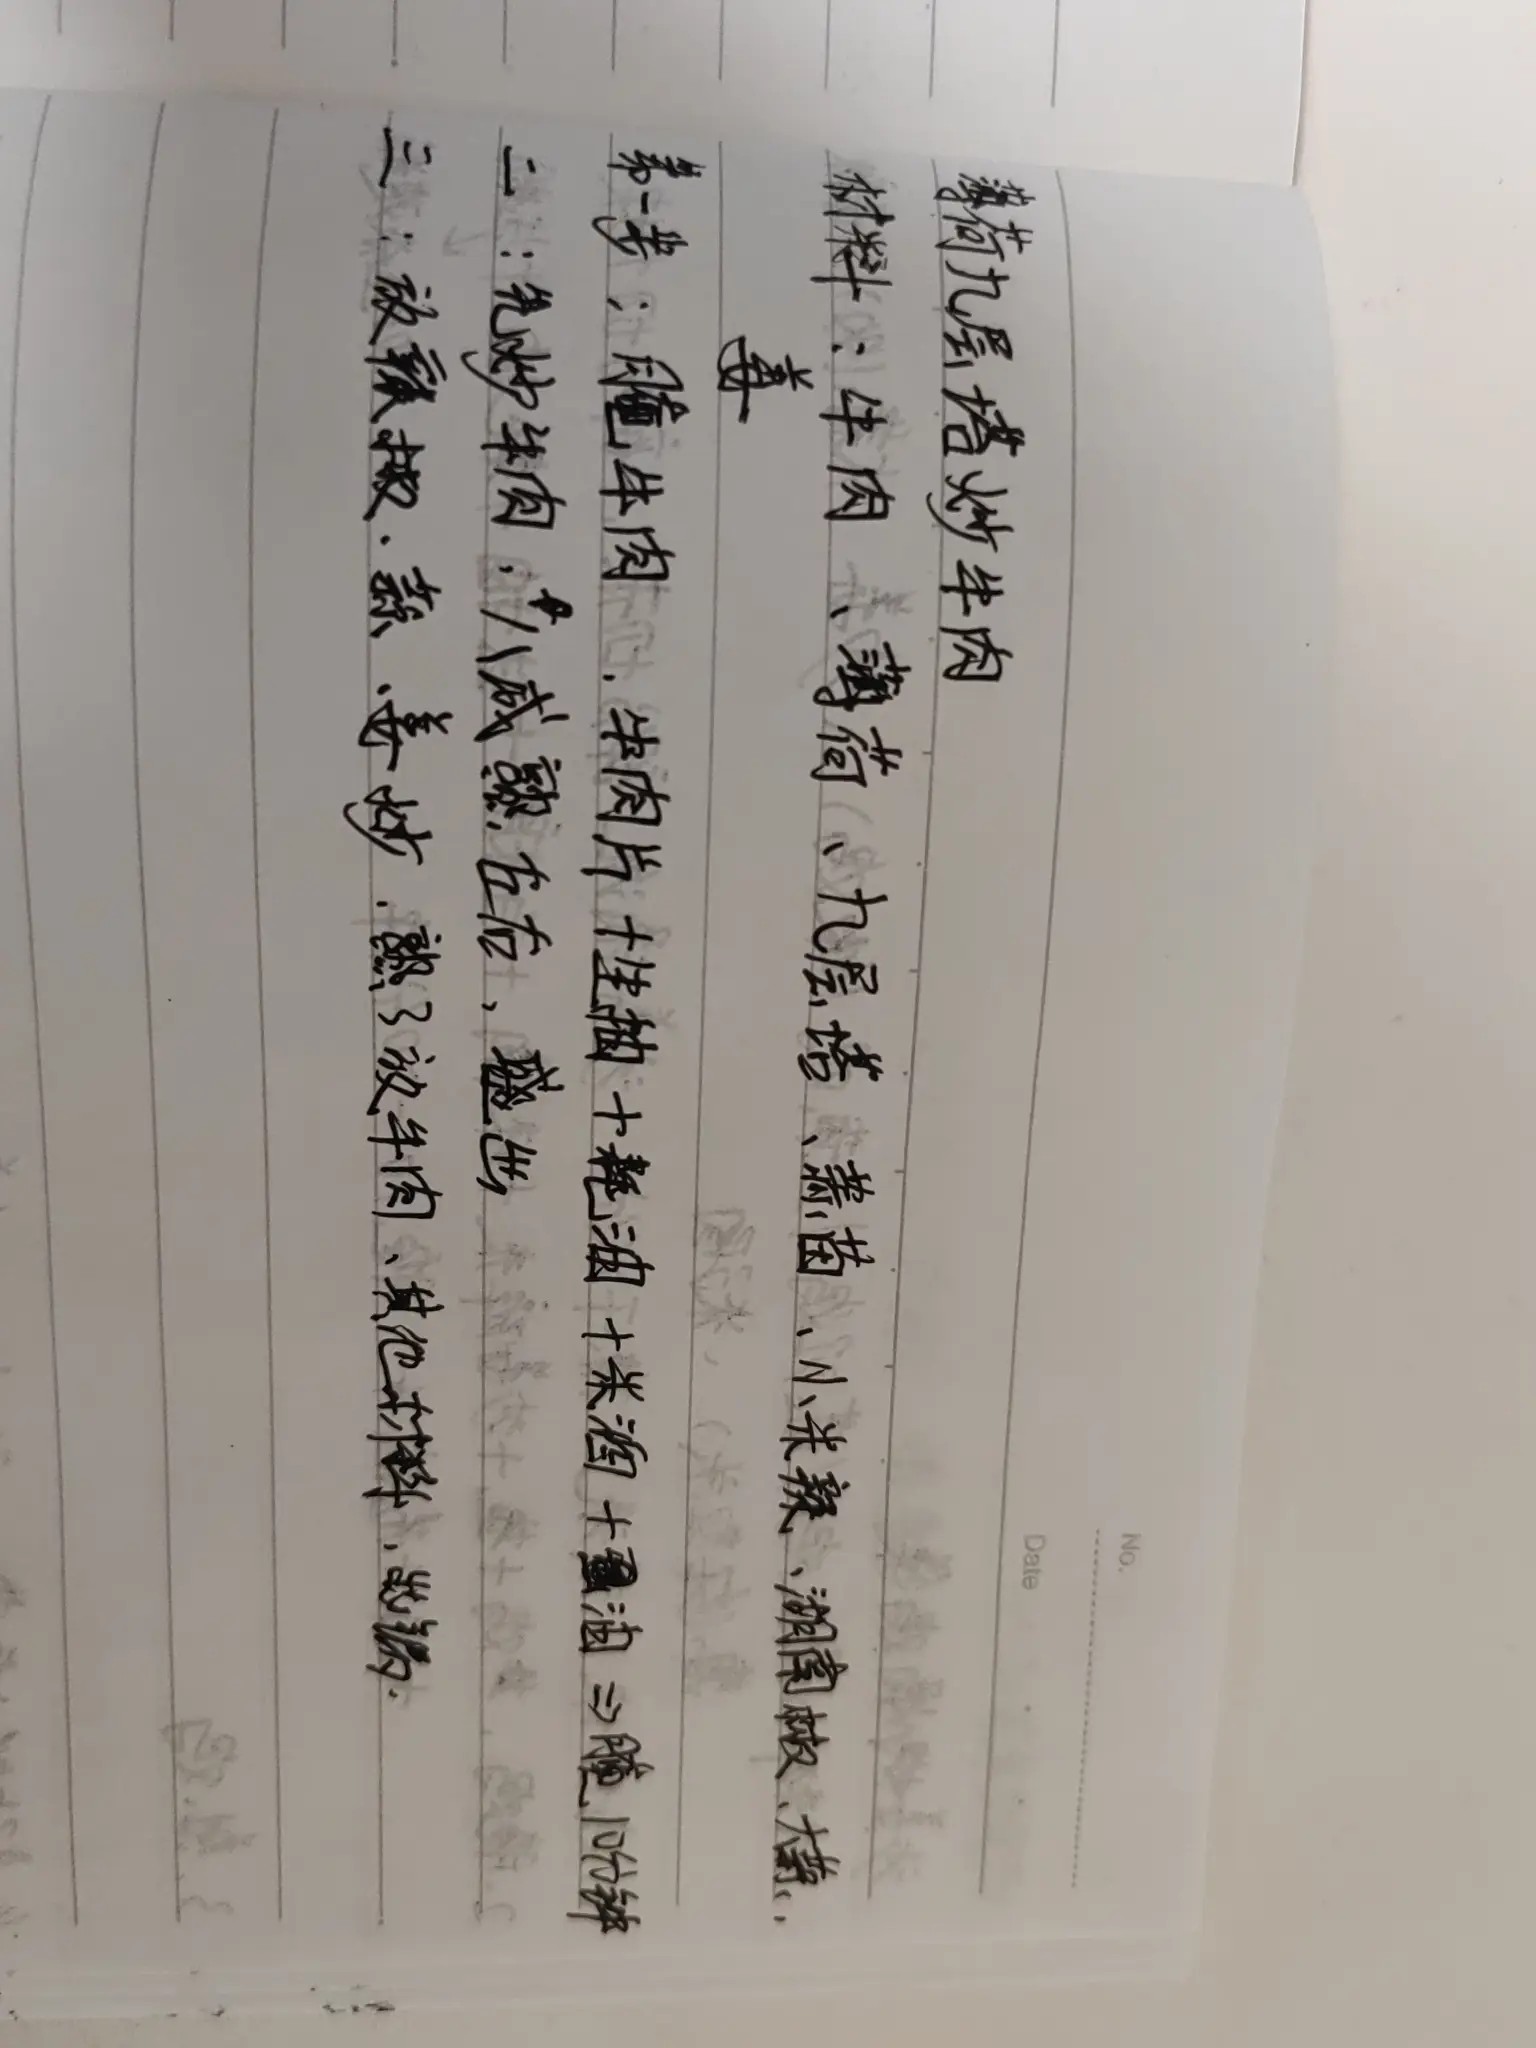 No.
Date
薄荷九层塔炒牛肉
材料：牛肉、薄荷、九层塔、蒜苗、小米辣、湖南椒、大蒜、
姜
第一步：腌牛肉．牛肉片+生抽+耗油+米酒+酱油⇒腌10分钟
二：先炒牛肉，八成熟左右、盛出
三：放辣椒．蒜、姜炒．熟了放牛肉、其他材料，出锅．